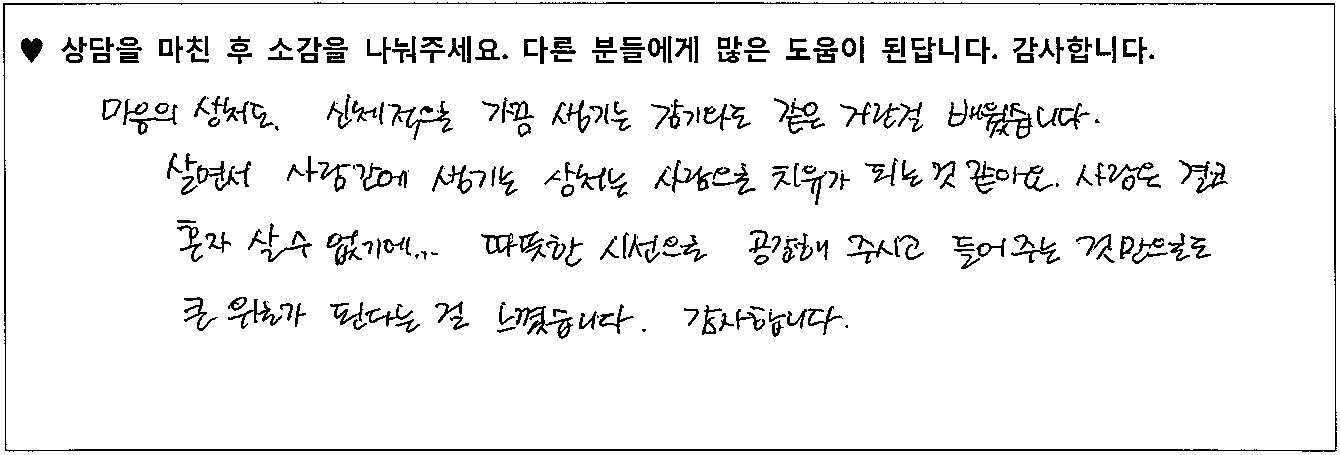 ♥ 상담을 마친 후 소감을 나눠주세요. 다른 분들에게 많은 도움이 된답니다. 감사합니다.
마음의 상처도, 신체적으로 가끔 생기는 감기와도 같은 거란걸 배웠습니다.
살면서 사람간에 생기는 상처는 사람으로 치유가 되는 것 같아요. 사람은 결코
혼자 살 수 없기에... 따뜻한 시선으로 공감해 주시고 들어주는 것만으로도
큰 위로가 된다는 걸 느꼈습니다. 감사합니다.